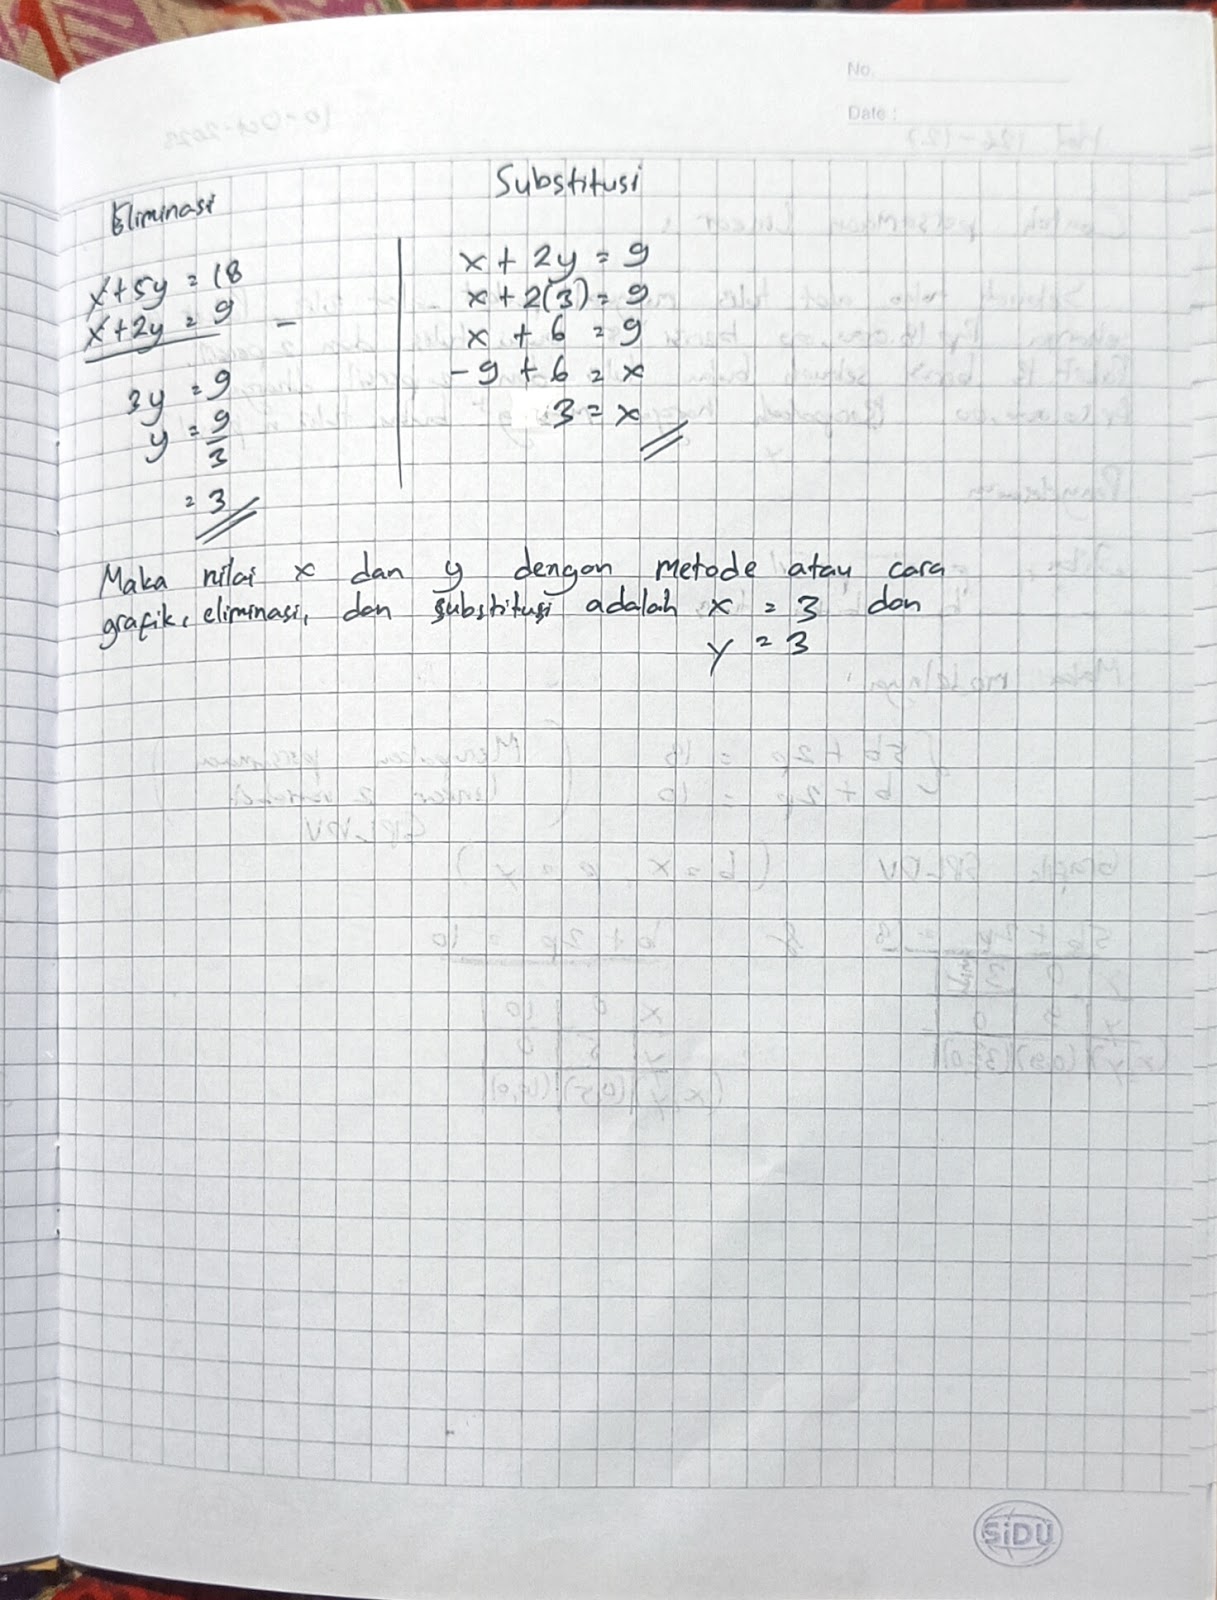 No.
Date :
Eliminasi
x+5y = 18
x+2y = 9 -
3y = 9
y = 9/3
= 3
Substitusi
x + 2y = 9
x + 2(3) = 9
x + 6 = 9
- 9 + 6 = x
3 = x
Maka nilai x dan y dengan metode atau cara
grafik, eliminasi, dan substitusi adalah x = 3 dan
y = 3
SiDU